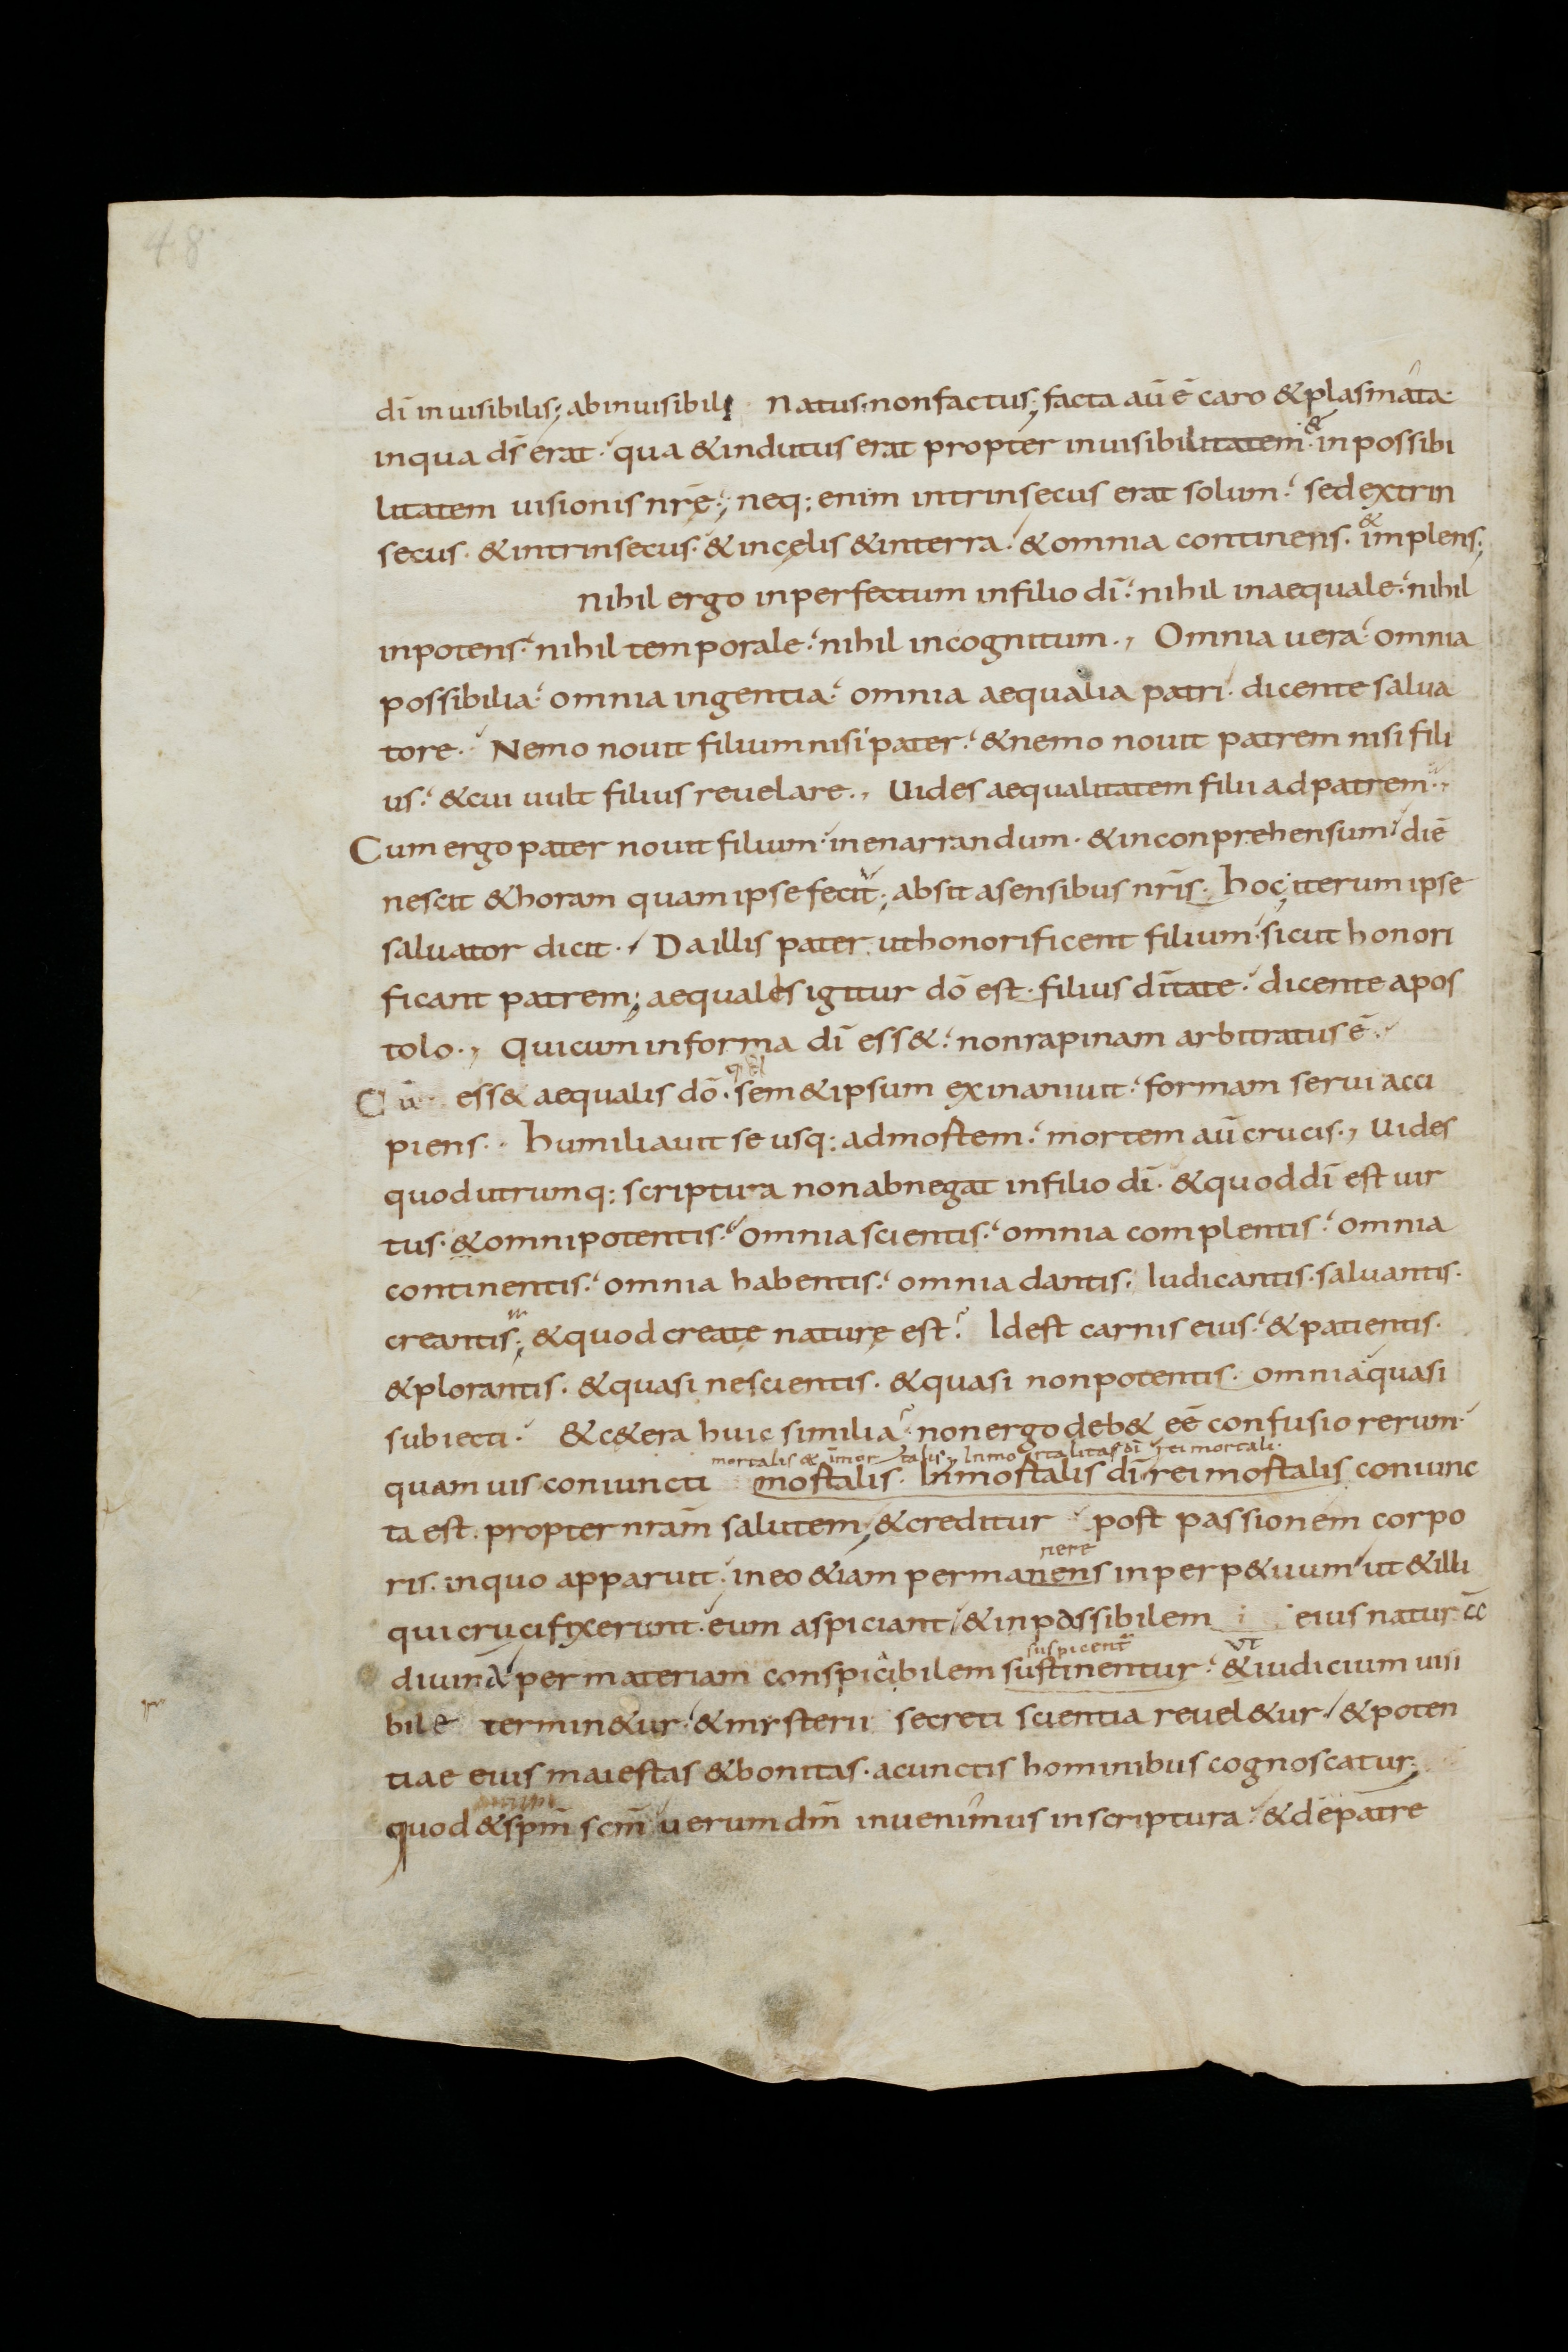 48
dī inuisibilis; abinuisibili Natus. nonfactus; facta aū ē caro &plasmata.
inqua d̄s erat. qua &indutus erat propter inuisibilitatem. & inpossibi
litatem uisionis nr̄ę; neq; enim intrinsecus erat solum. sed extrin
secus. &intrinsecus. &incęlis &interra. &omnia continens. & implens;
nihil ergo inperfectum infilio dī. nihil inaequale. nihil
inpotens. nihil temporale. nihil incognitum., Omnia uera. omnia
possibilia. omnia ingentia. omnia aequalia patri. dicente salua
tore. Nemo nouit filium nisi pater. &nemo nouit patrem nisi fili
us. &cui uult filius reuelare., Uides aequalitatem filii adpatrem.,
Cum ergo pater nouit filium. inenarrandum. &inconprehensum. diē
nescit &horam quam ipse fecit; absit asensibus nr̄is. hoc iterum ipse
saluator dicit., Da illis pater. uthonorificent filium. sicut honori
ficant patrem; aequales igitur dō est. filius dītate. dicente apos
tolo., Quicum informa dī ess&. nonrapinam arbitratus ē.
Cū ess& aequalis dō. sem&ipsum exinaniuit. formam serui acci
piens. humiliauit se usq; admortem. mortem aū crucis., Uides
quod utrumq; scriptura nonabnegat infilio dī. &quod dī est uir
tus. &omnipotentis. omnia scientis. omnia complentis. omnia
continentis. omnia habentis. omnia dantis. Iudicantis. saluantis.
creantis; &quod creatę naturę est. Idest carnis eius. &patientis.
&plorantis. &quasi nescientis. &quasi nonpotentis. omnia quasi
subiecti. &c&era huic similia. non ergo deb& eē confusio rerum.
mortalis & īmortalis, Inmortalitas dī rei mortali.
quamuis coniuncti mortalis. Inmortalis dī rei mortalis coniunc
ta est. propter nrām salutem, &creditur post passionem corpo
nere
ris. inquo apparuit. ineo &iam permanens inperp&uum. ut &illi
quicrucifixerunt. eum aspiciant, &inpassibilem eius natur
suspicent ut
diuina per materiam conspicibilem sustinentur. &iudicium uisi
bile termin&ur. &mysterii secreti scientia reuel&ur, &poten
tiae eius maiestas &bonitas. acunctis hominibus cognoscatur;
quod &spm̄ scm̄ uerum dm̄ inuenimus inscriptura. &depatre